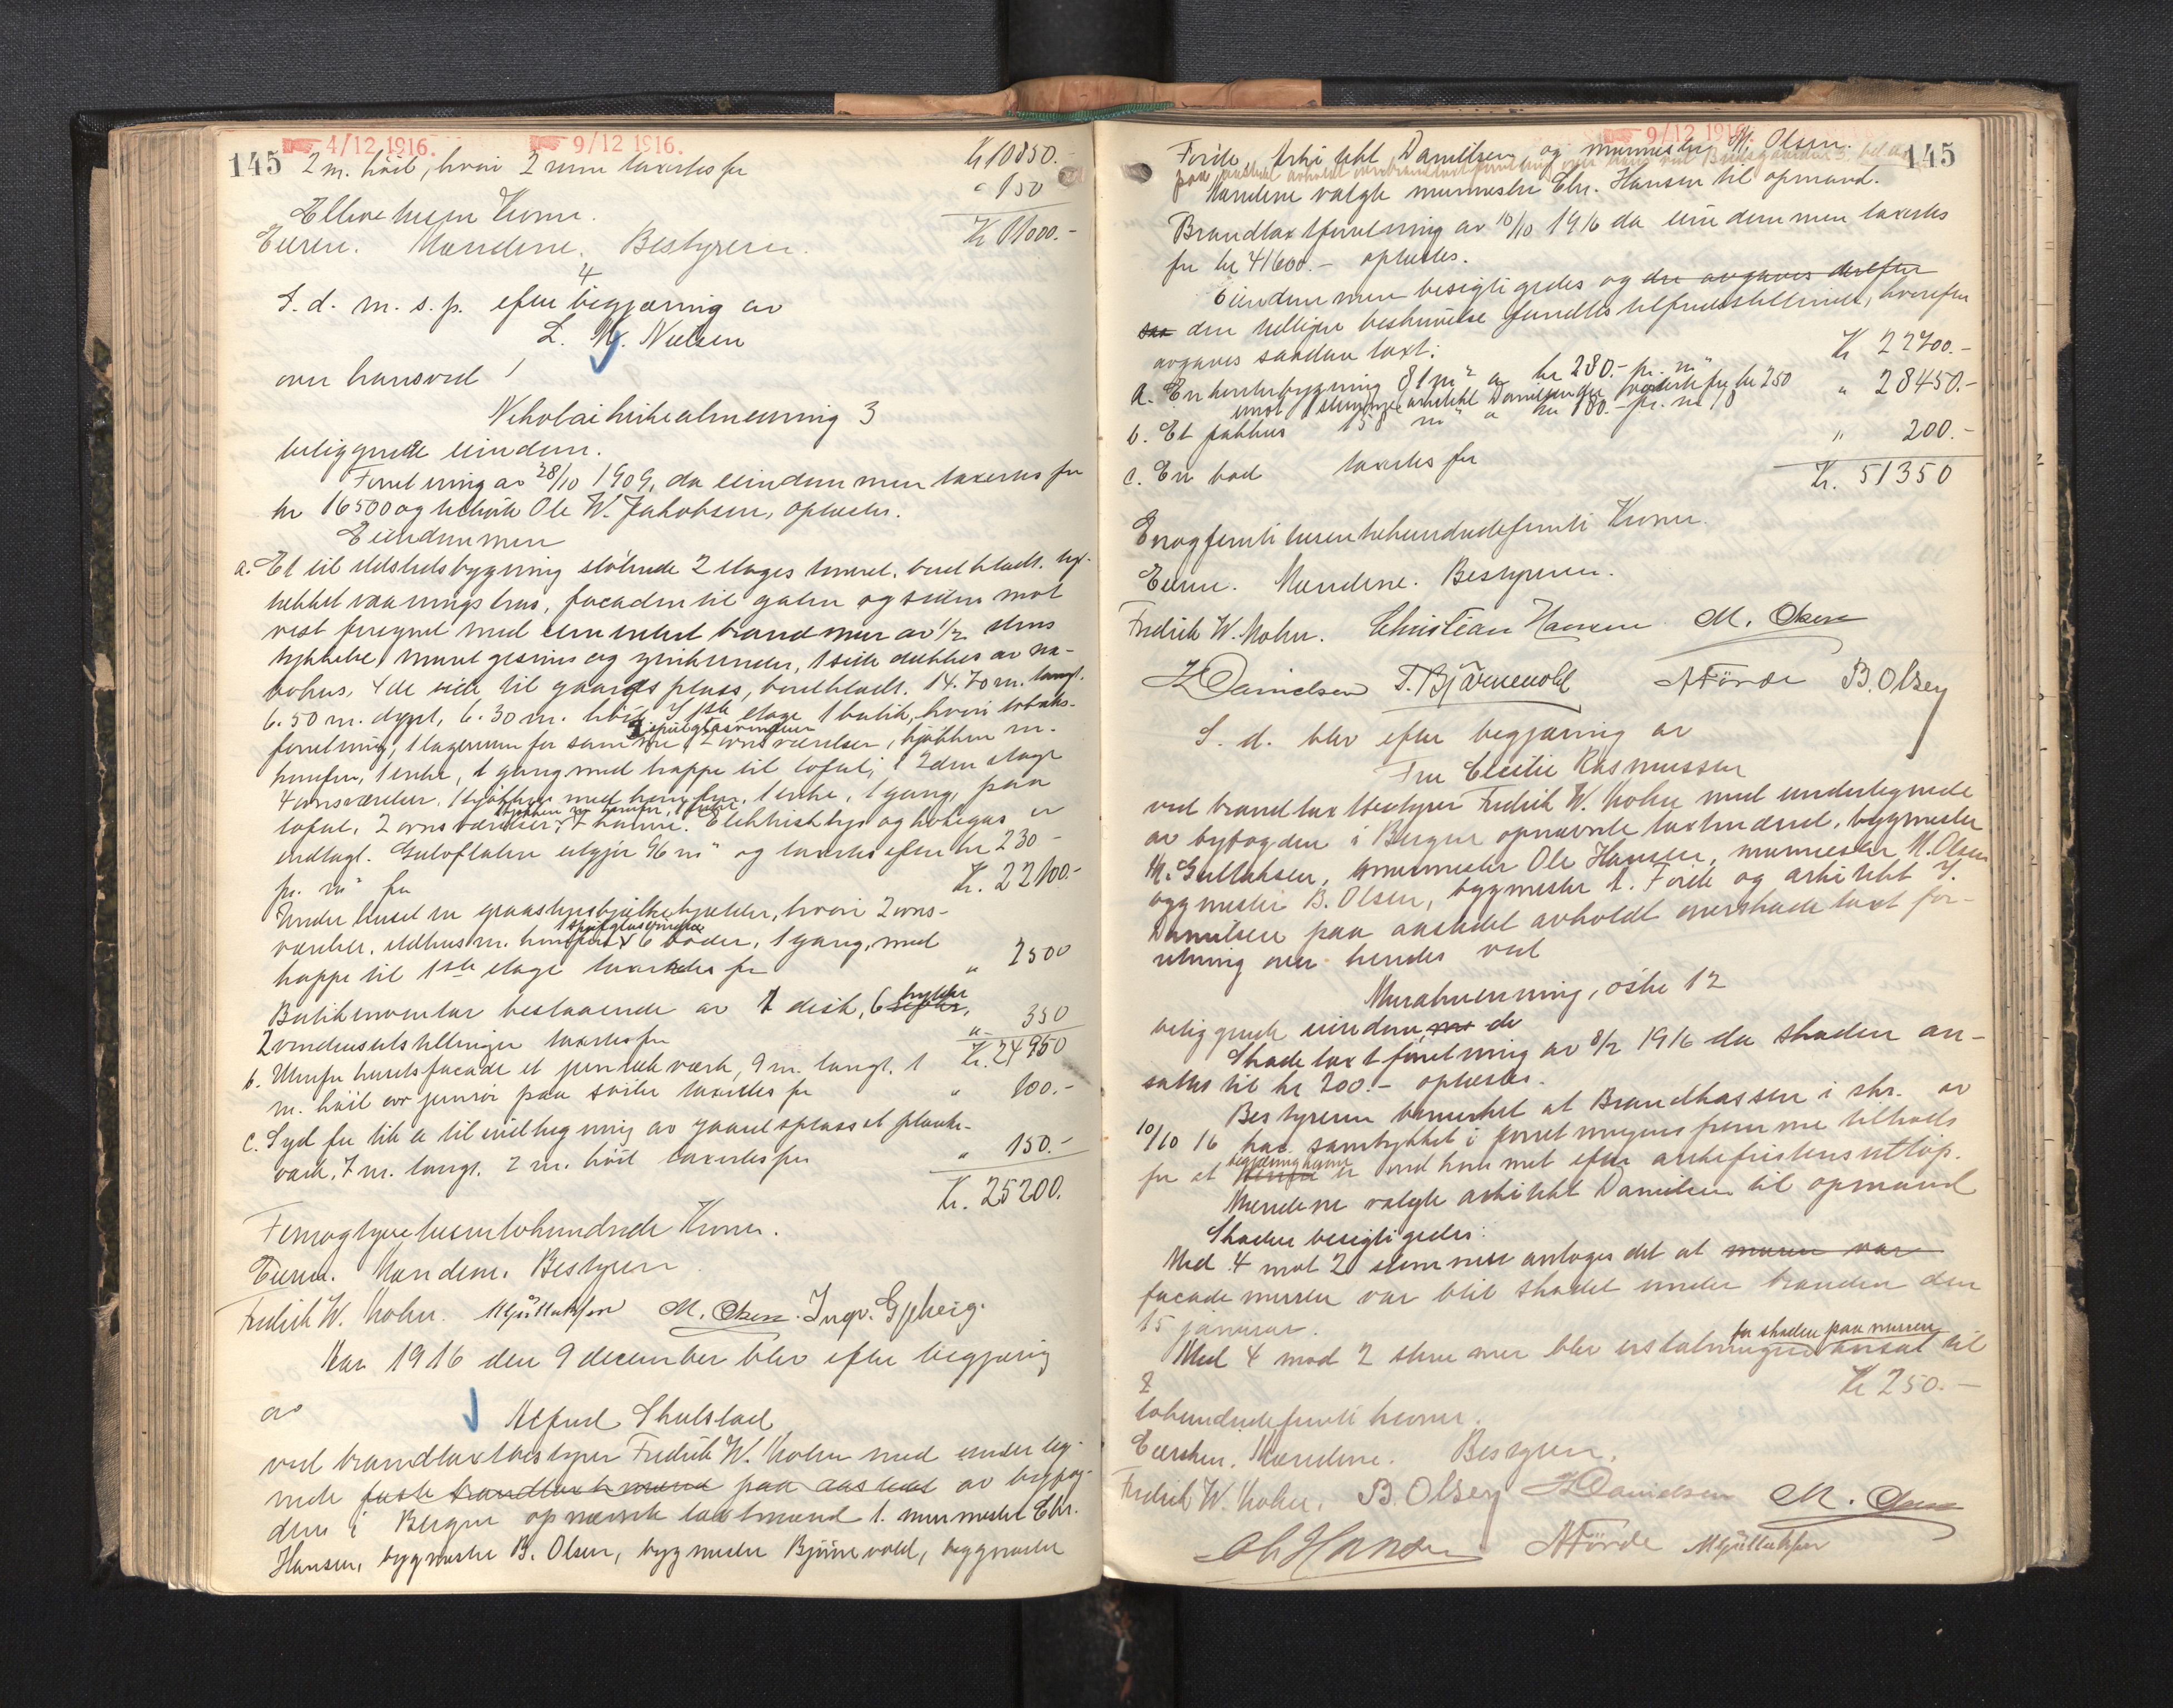 145
4/12 1916.
9/12 1916.
2 m. höit, hvori 2 rum taxertes for
Kr 10850.-
" 150
Kr 11000.-
Elleve tusen Kroner.
Eieren. Mændene. Bestyreren.
4
S. d. m. s. p. efter begjæring av
L. M. Nielsen
over hans ved
Nikolaikirkealmenning 3
beliggende eiendom.
Forretning av 28/10 1909, da eiendommen taxertes for
kr 16500 og tilhørte Ole W. Jakobsen, oplæstes.
Eiendommen
a. Et til ildstedsbygning stötende 2 etages tömret, bordklædt, teg-
tekket vaaningshus, facaden til gaten og siden mot
vest forsynet med cementert brandmur av 1/2 stens
tykkelse, muret gesims og, 1 side dækkes av na-
bohus, 4de side til gaardsplass, bordklædt. 14.70 m. langt.
6.50 m. dypt, 6.30 m. höit. I 1ste etage 1 butik, hvori tobaks-
2 speilglasvinduer
forretning, 1 lagerrum for samme, 2 ovnsværelser, kjökken m.
komfur, 1 entre, 1 gang med trappe til loftet; i 2den etage
4 ovnsværelser, 1 kjökken med komfur, 1 entre, 1 gang, paa
kjökken m. komfur,
loftet, 2 ovnsværelser, kamre. Elektrisk lys og kokegas er
indlagt. Gulvflaten utgjör 96 m² og taxertes efter kr 230 –
pr. m² for
Kr. 22100.-
Under huset en graastensbjelkekjelder, hvori 2 ovns-
1 speilglasvindu
værelser, ildhus m. komfur, 6 boder, 1 gang, med
trappe til 1ste etage taxertes for
" 2500
Butikinventar bestaaende av 1 disk, 6 hylder,
2 vindusutstillinger taxertes for
" 350
Kr. 24950
b. Utenfor husets facade et jernrekværk, 9 m. langt, 1
m. höit av jernrör paa söiler taxertes for
" 100.-
c. Syd for litr a til indhegning av gaardsplass et plank-
værk, 7 m. langt, 2 m. höit taxertes for
" 150.-
Kr. 25200.
Femogtyvetusentohundrede Kroner.
Eieren. Mændene. Bestyrer
Fredrik W. Mohn. MGullaksen M. Olsen. Ingv. Gjberg.
Aar 1916 den 9 december blev efter begjæring
av
Alfred Skulstad
ved brandtaxtbestyrer Fredrik W. Mohn med underteg-
nede faste brandtaxtmænd paa aastedet av byfog-
den i Bergen opnævnte taxtmænd 1. murmester Chr.
Hansen, bygmester B. Olsen, bygmester Björnevold, bygmester
9/12 1916.
145
Förde, arkitekt Danielsen og murmester M. Olsen.
paa aastedet avholdt
Mændene valgte murmester Chr. Hansen til opmand.
Brandtaxtforretning av 10/10 1916 da eiendommen taxertes
for kr 41600.- oplæstes.
Eiendommen besigtigedes og der avgaves derefter
saa den tidligere beskrivelse fandtes tilfredsstillende, hvorefter
avgaves saadan taxt:
a. En kontorbygning 81 m² a kr 280.- pr. m²
Kr 22700.-
imot 1 stemme arkitekt Danielsen der voterte for kr 250
b. Et pakhus 158 m² a kr 180.- pr. m²
" 28450.-
c. En bod taxertes for
" 200.-
Kr. 51350
Enogfemtitusentrehundredefemti Kroner.
Eieren. Mændene. Bestyreren.
Fredrik W. Mohn. Christian Hansen M. Olsen
Danielsen T. Björnevold AFörde B. Olsen
S. d. blev efter begjæring av
Fru Cecilie Rasmussen
ved brandtaxtbestyrer Fredrik W. Mohn med undertegnede
av byfogden i Bergen opnævnte taxtmænd, bygmester
M. Gullaksen, murmester Ole Hansen, murmester M. Olsen
bygmester B. Olsen, bygmester A. Förde og arkitekt
Danielsen paa aastedet avholdt overskadetaxtfor-
retning over hendes ved
Muralmenning, östre 12
beliggende eiendom
Skadetaxtforretning av 8/2 1916 da skaden an-
sattes til kr 200.- oplæstes.
Bestyreren bemerket at Brandkassen i skr. av
10/10 16 har samtykket i forretningens fremme tiltrods
begjæring herom
for at er indkommet efter ankefristens utlöp.
Mændene valgte arkitekt Danielsen til opmand
Skaden besigtigedes.
Med 4 mot 2 stemmer antoges det at muren var
facademuren var blit skadet under branden den
15 januar.
for skaden paa muren
Med 4 mod 2 stemmer blev erstatningen ansat til
Kr 250.-
tohundredefemti kroner.
Eiersken. Mændene. Bestyrer.
Fredrik W. Mohn. B. Olsen Danielsen M. Olsen
Ole Hansen AFörde MGullaksen